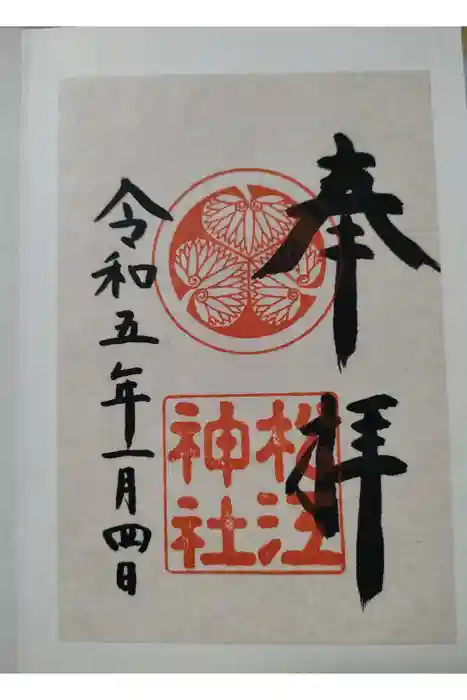 奉拝
松江
神社
令和五年一月四日